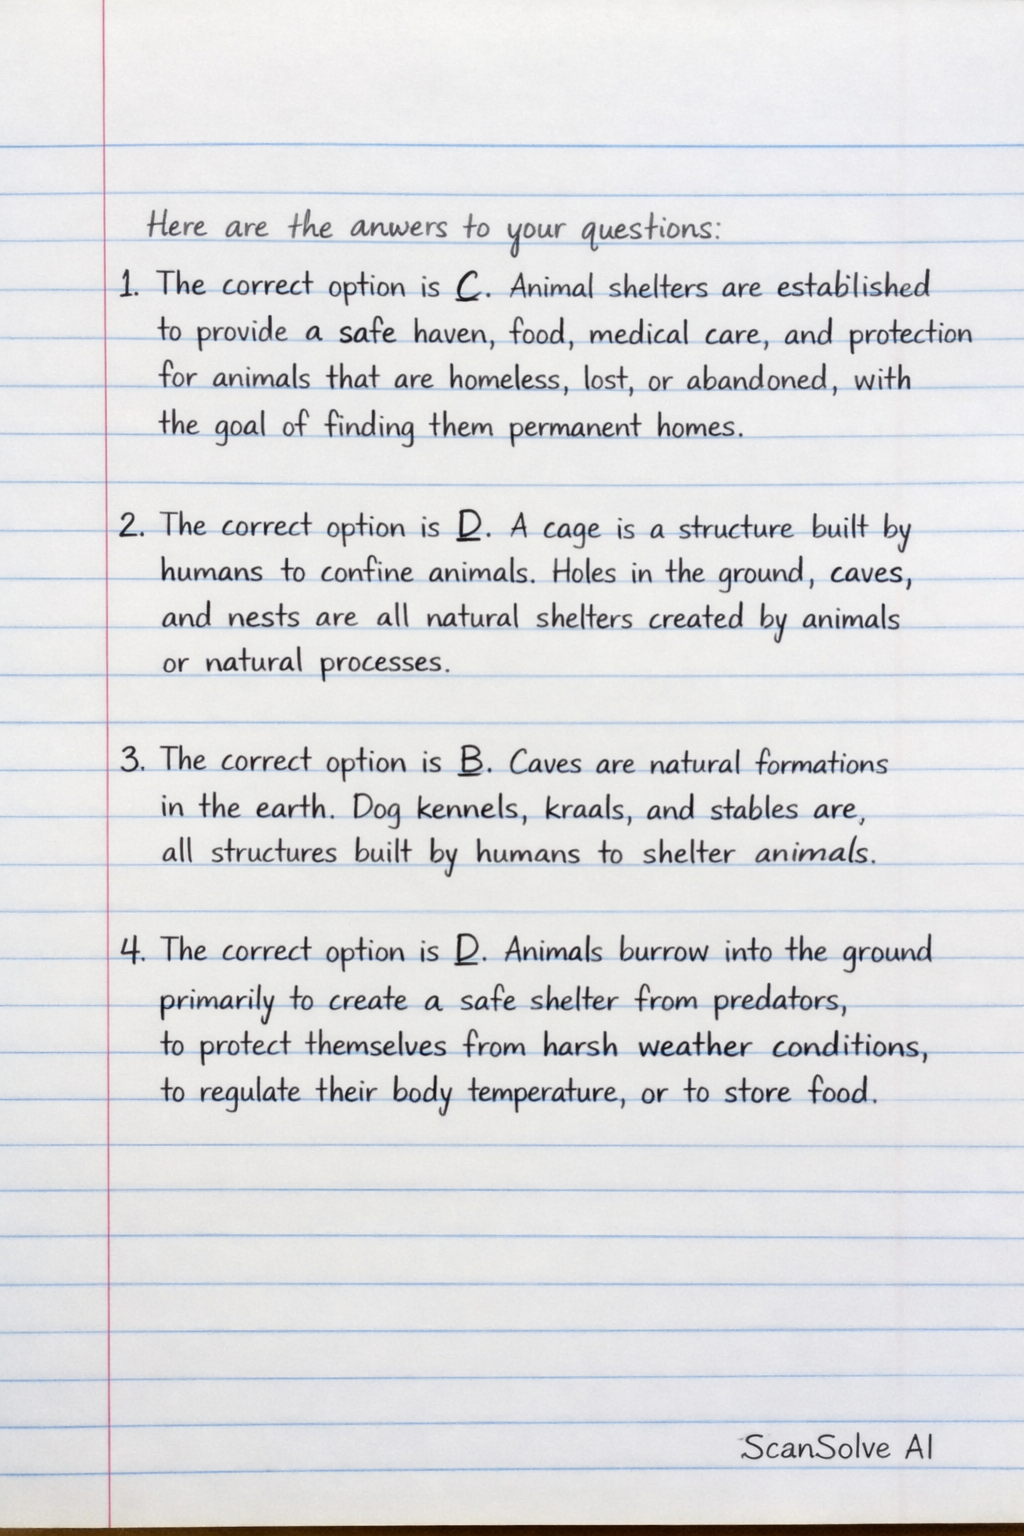 Here are the anwers to your questions:
1. The correct option is C. Animal shelters are established
to provide a safe haven, food, medical care, and protection
for animals that are homeless, lost, or abandoned, with
the goal of finding them permanent homes.
2. The correct option is D. A cage is a structure built by
humans to confine animals. Holes in the ground, caves,
and nests are all natural shelters created by animals
or natural processes.
3. The correct option is B. Caves are natural formations
in the earth. Dog kennels, kraals, and stables are,
all structures built by humans to shelter animals.
4. The correct option is D. Animals burrow into the ground
primarily to create a safe shelter from predators,
to protect themselves from harsh weather conditions,
to regulate their body temperature, or to store food.
ScanSolve AI